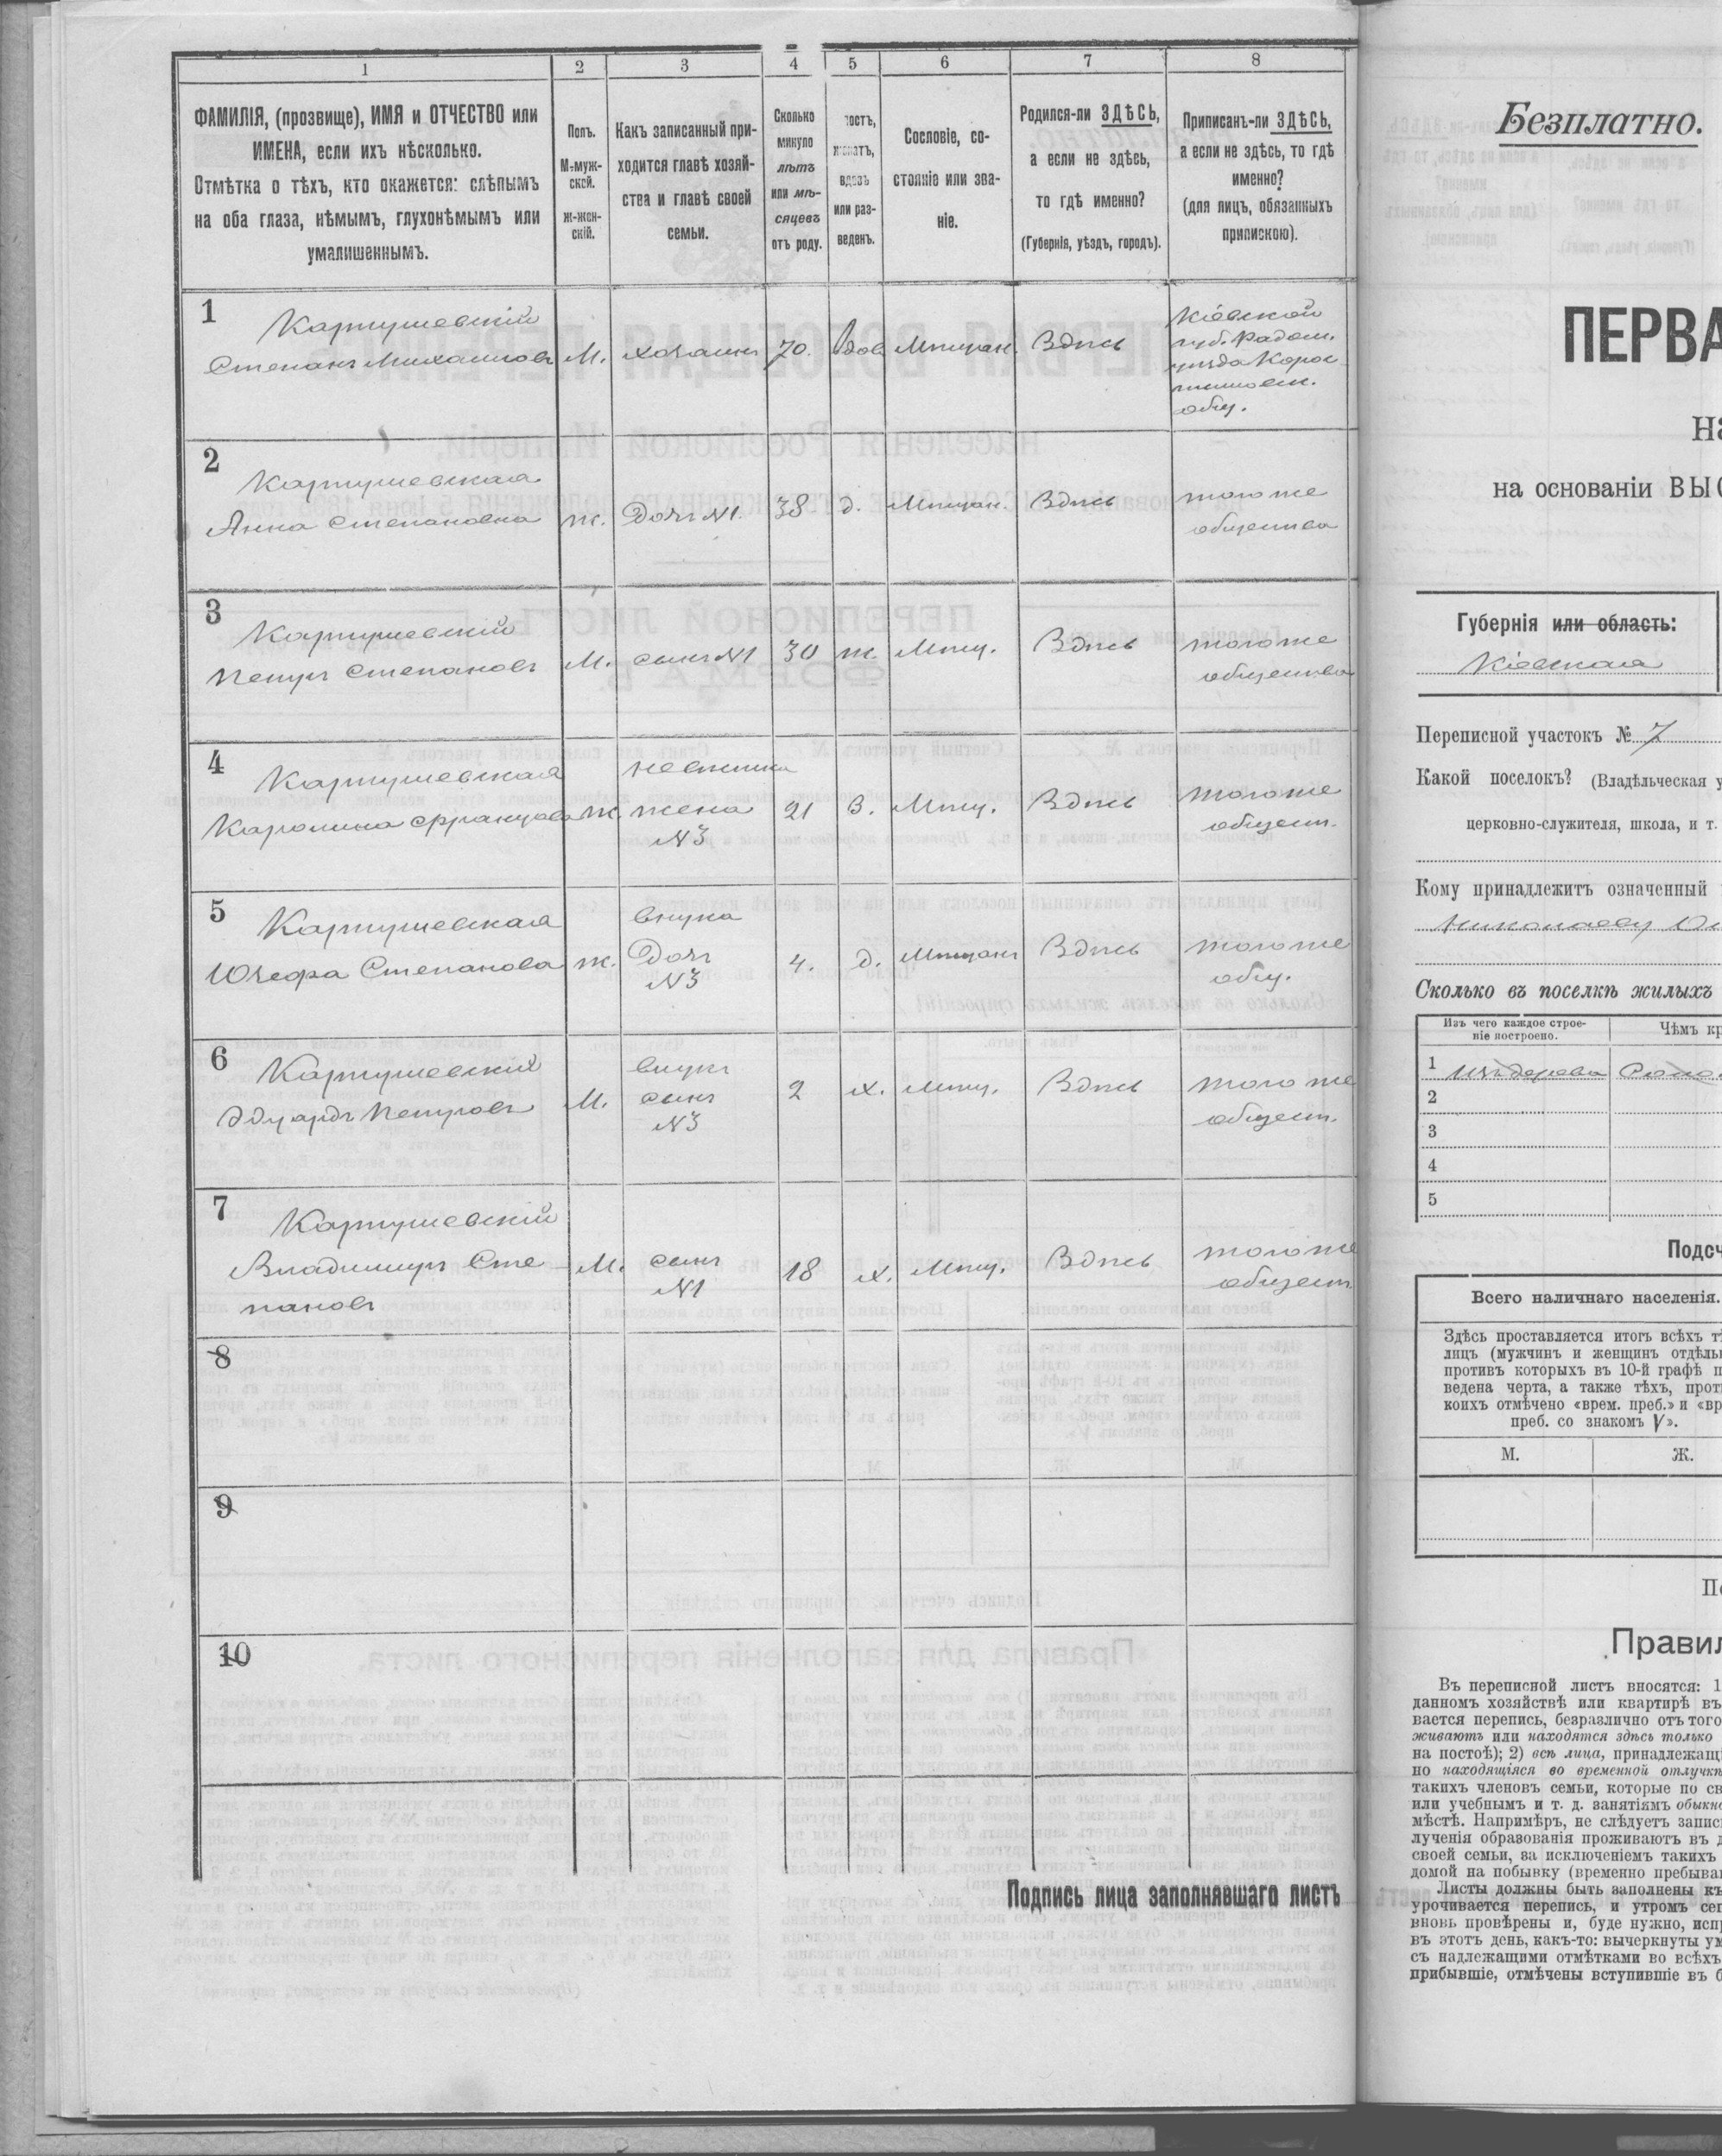 1
2
3
4
5
6
7
8
ФАМИЛІЯ, (прозвище), ИМЯ и ОТЧЕСТВО или
ИМЕНА, если ихъ нѣсколько.
Отмѣтка о тѣхъ, кто окажется: слѣпымъ
на оба глаза, нѣмымъ, глухонѣмымъ или
умалишеннымъ.
Полъ.
М-муж-
ской.
ж-жен-
скій.
Какъ записанный при-
ходится главѣ хозяй-
ства и главѣ своей
семьи.
Сколько
минуло
лѣтъ
или мѣ-
сяцевъ
отъ роду.
тостъ,
женатъ,
вдовъ
или раз-
веденъ.
Сословіе, со-
стояніе или зва-
ніе.
Родился-ли ЗДѢСЬ,
а если не здѣсь,
то гдѣ именно?
(Губернія, уѣздъ, городъ).
Приписанъ-ли ЗДѢСЬ,
а если не здѣсь, то гдѣ
именно?
(для лицъ, обязанныхъ
припискою).
1
Картушевскій
Степанъ Михаиловъ
М.
хозаинъ
70.
вдов
Мѣщан.
Здѣсь
Кіевской
губ. Радом.
уѣзда Корос
тишовск.
общ.
2
Картушевская
Анна Степановна
ж.
Дочь №1.
38
д.
Мѣщан.
Здѣсь
того же
общества
3
Картушевскій
Петръ Степановъ
М.
сынъ №1
30
ж.
Мѣщ.
Здѣсь
того же
общества
4
Картушевская
Каролина Францова
ж.
невѣстка
жена
№3
21
З.
Мѣщ.
Здѣсь
того же
общест.
5
Картушевская
Юзефа Степанова
ж.
внука
Дочь
№3
4.
д.
Мѣщан
Здѣсь
того же
общ.
6
Картушевскій
Эдуардъ Петровъ
М.
внукъ
сынъ
№3
2
х.
Мѣщ.
Здѣсь
того же
общест.
7
Картушевскій
Владимиръ Сте
пановъ
М.
сынъ
№1
18
х.
Мѣщ.
Здѣсь
того же
общест
8
9
10
Подпись лица заполнявшаго листъ
Безплатно.
ПЕРВА
на основаніи ВЫС
Губернія или область:
Кіевская
Переписной участокъ № 7
Какой поселокъ? (Владѣльческая у
церковно-служителя, школа, и т.
Кому принадлежитъ означенный
Николаеву
Сколько въ поселкѣ жилыхъ
Изъ чего каждое строе-
ніе построено.
Чѣмъ кр
1 Изъ дерева Соло
2
3
4
5
Подсч
Всего наличнаго населенія.
Здѣсь проставляется итогъ всѣхъ тѣ
лицъ (мужчинъ и женщинъ отдѣль
противъ которыхъ въ 10-й графѣ п
ведена черта, а также тѣхъ, проти
коихъ отмѣчено «врем. преб.» и «вр
преб. со знакомъ V».
М.
Ж.
Правил
Въ переписной листъ вносятся: 1
данномъ хозяйствѣ или квартирѣ въ
вается перепись, безразлично отъ того
живаютъ или находятся здѣсь только
на постоѣ); 2) всѣ лица, принадлежащі
но находящіяся во временной отлучкѣ
такихъ членовъ семьи, которые по св
или учебнымъ и т. д. занятіямъ обыкно
мѣстѣ. Напримѣръ, не слѣдуетъ запис
лученія образованія проживаютъ въ д
своей семьи, за исключеніемъ такихъ
домой на побывку (временно пребыва
Листы должны быть заполнены къ
урочивается перепись, и утромъ сег
вновь провѣрены и, буде нужно, исп
въ этотъ день, какъ-то: вычеркнуты ум
съ надлежащими отмѣтками во всѣхъ
прибывшіе, отмѣчены вступившіе въ б